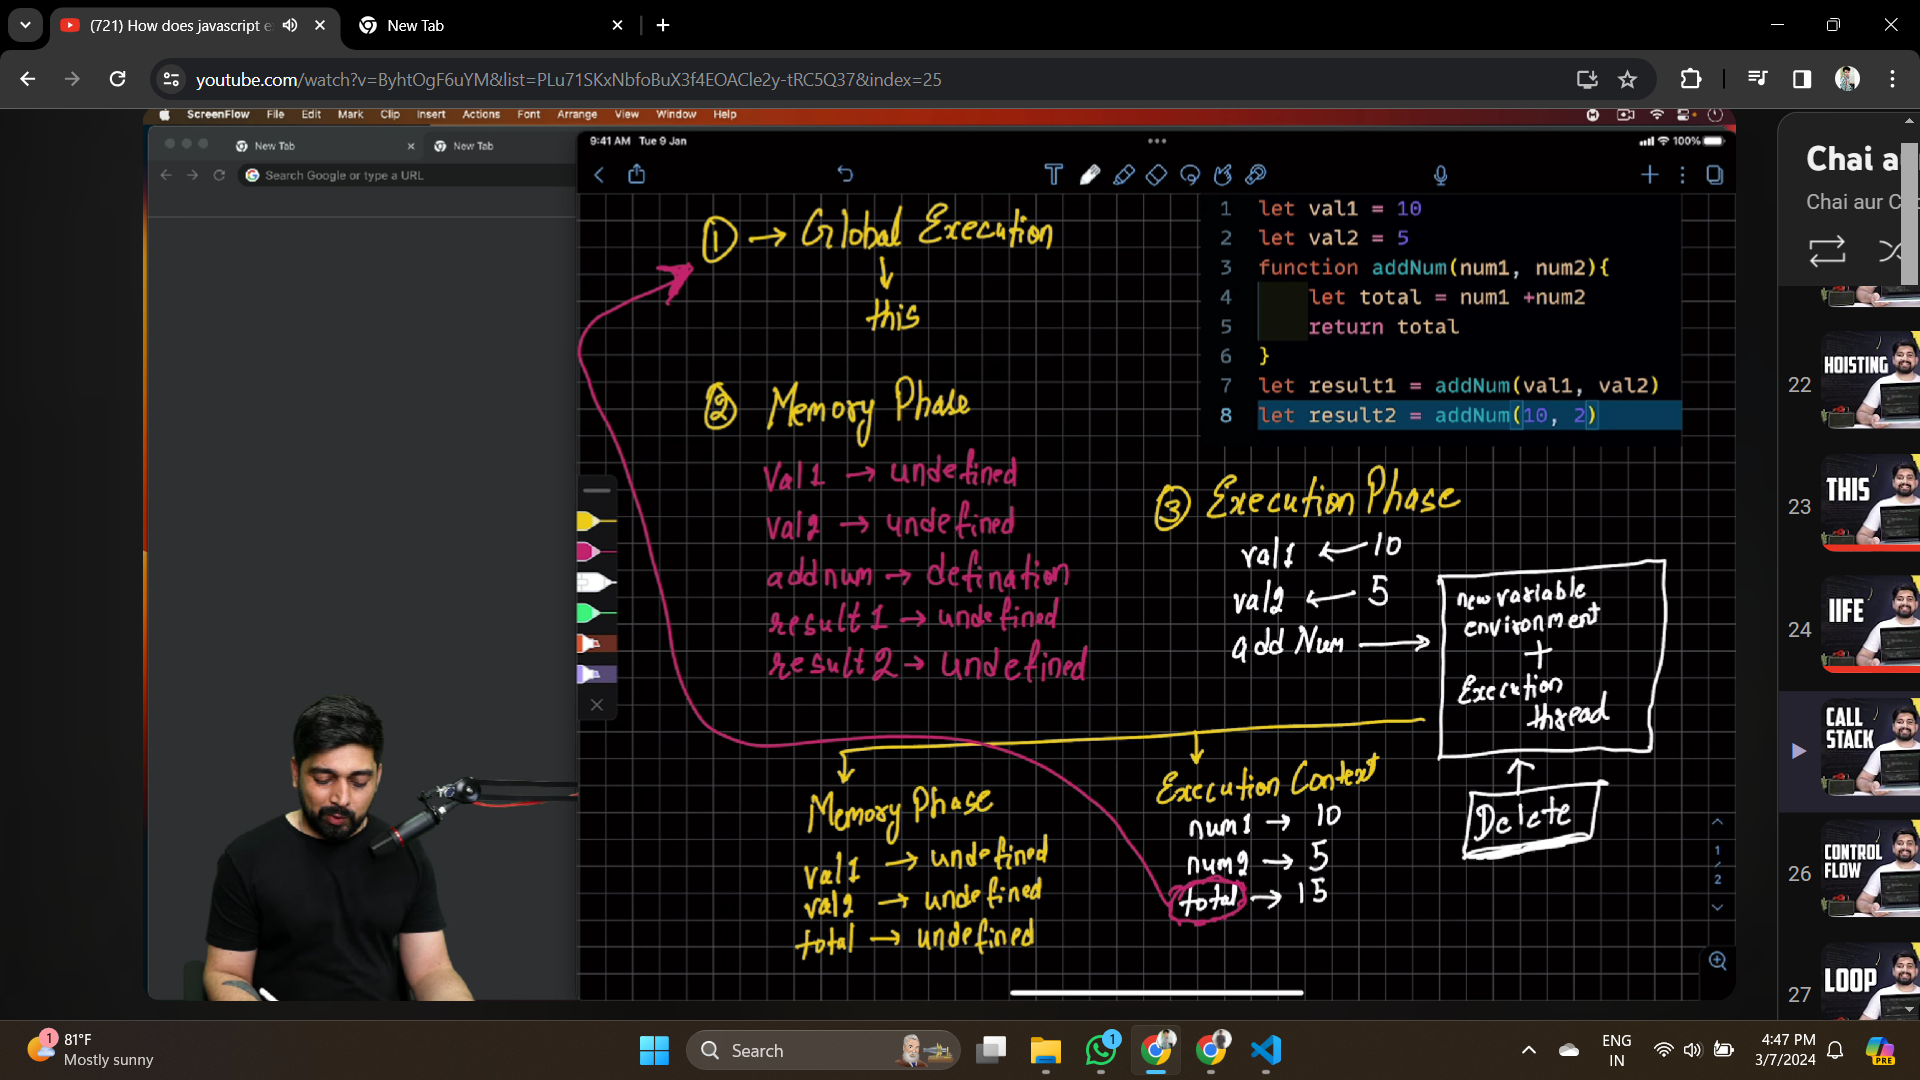 (721) How does javascript e
New Tab
youtube.com/watch?v=ByhtOgF6uYM&list=PLu71SKxNbfoBuX3f4EOACle2y-tRC5Q37&index=25
ScreenFlow File Edit Mark Clip Insert Actions Font Arrange View Window Help
New Tab
New Tab
Search Google or type a URL
9:41 AM Tue 9 Jan
100%
① → Global Execution
↓
this
② Memory Phase
val1 → undefined
val2 → undefined
addnum → defination
result1 → undefined
result2 → undefined
1 let val1 = 10
2 let val2 = 5
3 function addNum(num1, num2){
4 let total = num1 +num2
5 return total
6 }
7 let result1 = addNum(val1, val2)
8 let result2 = addNum(10, 2)
③ Execution Phase
val1 ← 10
val2 ← 5
add Num →
new variable
environment
+
Execution
thread
Delete
Memory Phase
val1 → undefined
val2 → undefined
total → undefined
Execution Context
num1 → 10
num2 → 5
total → 15
1
/
2
Chai a
Chai aur C
22
HOISTING
23
THIS
24
IIFE
CALL
STACK
26
CONTROL
FLOW
27
LOOP
1
81°F
Mostly sunny
Search
1
ENG
IN
4:47 PM
3/7/2024
PRE